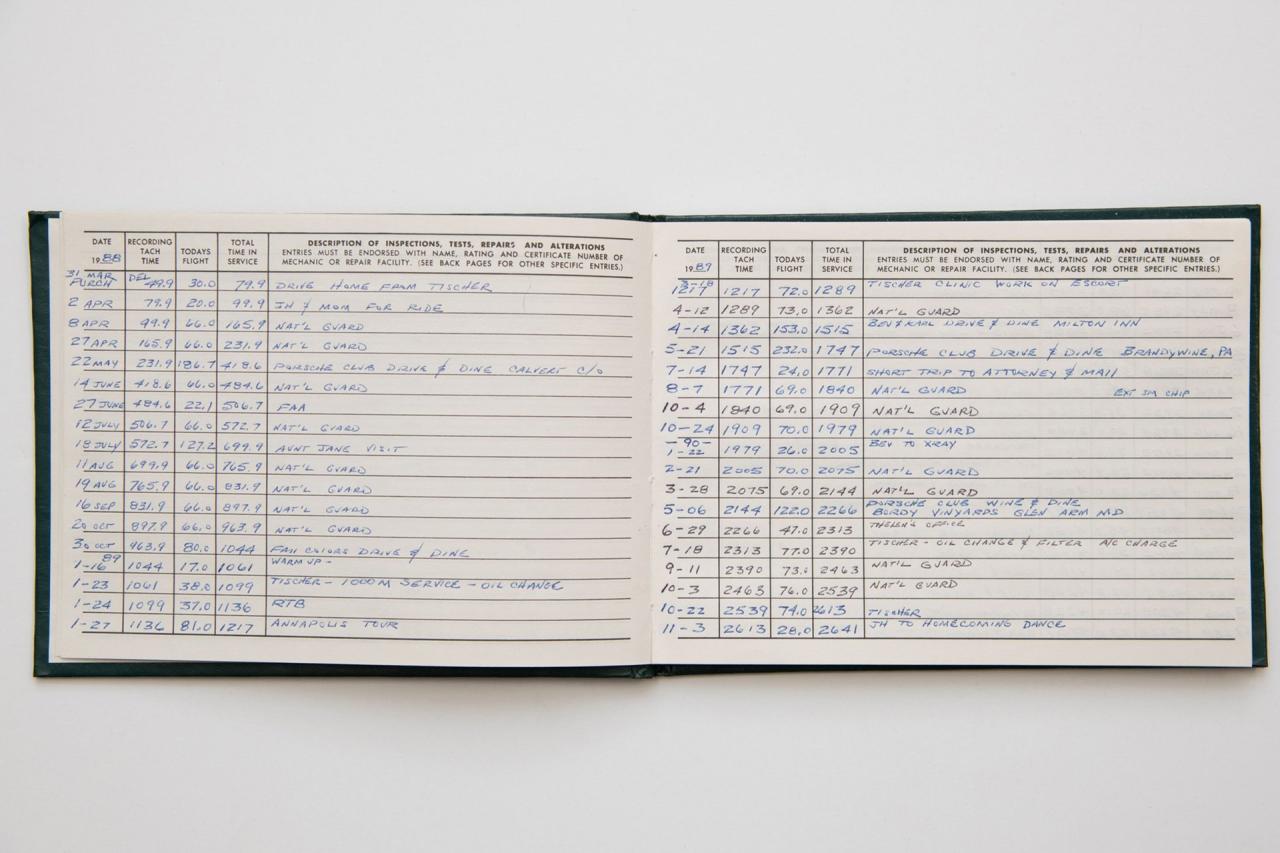 DATE RECORDING TACH TIME TODAYS FLIGHT TOTAL TIME IN SERVICE DESCRIPTION OF INSPECTIONS, TESTS, REPAIRS AND ALTERATIONS
1988 ENTRIES MUST BE ENDORSED WITH NAME, RATING AND CERTIFICATE NUMBER OF
MECHANIC OR REPAIR FACILITY. (SEE BACK PAGES FOR OTHER SPECIFIC ENTRIES.)
31 MAR PURCH DEL 49.9 30.0 79.9 DRIVE HOME FROM TISCHER
2 APR 79.9 20.0 99.9 JH & MOM FOR RIDE
8 APR 99.9 66.0 165.9 NAT'L GUARD
27 APR 165.9 66.0 231.9 NAT'L GUARD
22 MAY 231.9 186.7 418.6 PORSCHE CLUB DRIVE & DINE CALVERT C/O
14 JUNE 418.6 66.0 484.6 NAT'L GUARD
27 JUNE 484.6 22.1 506.7 FAA
12 JULY 506.7 66.0 572.7 NAT'L GUARD
18 JULY 572.7 127.2 699.9 AUNT JANE VISIT
11 AUG 699.9 66.0 765.9 NAT'L GUARD
19 AUG 765.9 66.0 831.9 NAT'L GUARD
16 SEP 831.9 66.0 897.9 NAT'L GUARD
20 OCT 897.9 66.0 963.9 NAT'L GUARD
30 OCT 963.9 80.0 1044 FALL COLORS DRIVE & DINE
1-16 89 1044 17.0 1061 WARM UP -
1-23 1061 38.0 1099 TISCHER - 1000 M SERVICE - OIL CHANGE
1-24 1099 37.0 1136 RTB
1-27 1136 81.0 1217 ANNAPOLIS TOUR
DATE RECORDING TACH TIME TODAYS FLIGHT TOTAL TIME IN SERVICE DESCRIPTION OF INSPECTIONS, TESTS, REPAIRS AND ALTERATIONS
1989 ENTRIES MUST BE ENDORSED WITH NAME, RATING AND CERTIFICATE NUMBER OF
MECHANIC OR REPAIR FACILITY. (SEE BACK PAGES FOR OTHER SPECIFIC ENTRIES.)
3-18 1217 1217 72.0 1289 TISCHER CLINIC WORK ON ESCORT
4-12 1289 73.0 1362 NAT'L GUARD
4-14 1362 153.0 1515 BEV & KARL DRIVE & DINE MILTON INN
5-21 1515 232.0 1747 PORSCHE CLUB DRIVE & DINE BRANDYWINE, PA
7-14 1747 24.0 1771 SHORT TRIP TO ATTORNEY & MALL
8-7 1771 69.0 1840 NAT'L GUARD EXT SM CHIP
10-4 1840 69.0 1909 NAT'L GUARD
10-24 1909 70.0 1979 NAT'L GUARD
-90- 1-22 1979 26.0 2005 BEV TO XRAY
2-21 2005 70.0 2075 NAT'L GUARD
3-28 2075 69.0 2144 NAT'L GUARD
5-06 2144 122.0 2266 PORSCHE CLUB WINE & DINE
BORDY VINYARDS GLEN ARM MD
6-29 2266 47.0 2313 THELEN'S OFFICE
7-18 2313 77.0 2390 TISCHER - OIL CHANGE & FILTER A/C CHARGE
9-11 2390 73.0 2463 NAT'L GUARD
10-3 2463 76.0 2539 NAT'L GUARD
10-22 2539 74.0 2613 TISCHER
11-3 2613 28.0 2641 JH TO HOMECOMING DANCE